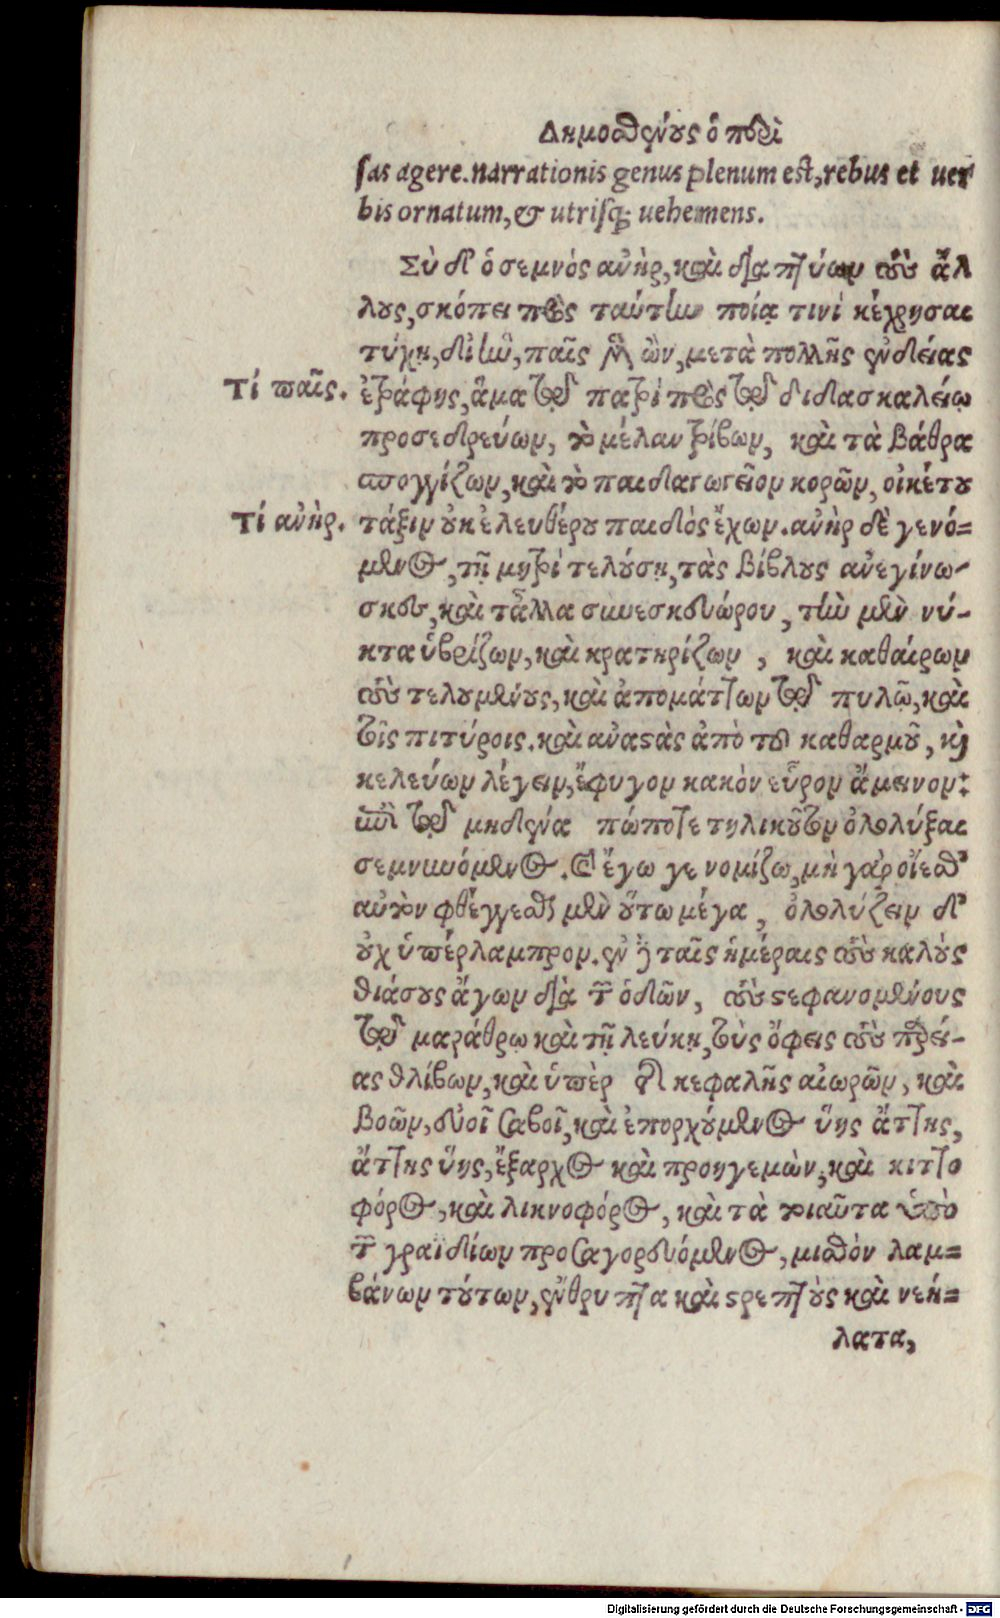 Δημοσθένους ὁ περὶ
sas agere. narrationis genus plenum est, rebus et uer
bis ornatum, & utrisq; uehemens.
Σὺ δ' ὁ σεμνὸς ἀνὴρ, καὶ διαπτύων τοὺς ἄλ
λους, σκόπει πρὸς ταύτην ποίᾳ τινὶ κέχρησαι
τύχῃ, δι' ἣν, παῖς μὲν ὢν, μετὰ πολλῆς ἐνδείας
Τί παῖς.
ἐτράφης, ἅμα τῷ πατρὶ πρὸς τῷ διδασκαλείῳ
προσεδρεύων, τὸ μέλαν τρίβων, καὶ τὰ βάθρα
σπογγίζων, καὶ τὸ παιδαγωγεῖον κορῶν, οἰκέτου
Τί ἀνὴρ.
τάξιν οὐκ ἐλευθέρου παιδὸς ἔχων. ἀνὴρ δὲ γενό=
μενος, τῇ μητρὶ τελούσῃ, τὰς βίβλους ἀνεγίνω-
σκες, καὶ τἆλλα συνεσκευώρου, τὴν μὲν νύ-
κτα νεβρίζων, καὶ κρατηρίζων, καὶ καθαίρων
τοὺς τελουμένους, καὶ ἀπομάττων τῷ πηλῷ, καὶ
τοῖς πιτύροις. καὶ ἀναστὰς ἀπὸ τοῦ καθαρμοῦ, καὶ
κελεύων λέγειν, ἔφυγον κακὸν εὗρον ἄμεινον:
ἐπὶ τῷ μηδένα πώποτε τηλικοῦτον ὀλολύξαι
σεμνυνόμενος. καὶ ἔγωγε νομίζω, μὴ γὰρ οἴεσθ'
αὐτὸν φθέγγεσθαι μὲν οὕτω μέγα, ὀλολύζειν δ'
οὐχ ὑπέρλαμπρον. ἐν δὲ ταῖς ἡμέραις τοὺς καλοὺς
θιάσους ἄγων διὰ τῶν ὁδῶν, τοὺς στεφανουμένους
τῷ μαράθρῳ καὶ τῇ λεύκῃ, τοὺς ὄφεις τοὺς παρεί-
ας θλίβων, καὶ ὑπὲρ τῆς κεφαλῆς αἰωρῶν, καὶ
βοῶν, εὐοῖ σαβοῖ, καὶ ἐπορχούμενος ὕης ἄττης,
ἄττης ὕης, ἔξαρχος καὶ προηγεμὼν, καὶ κιττο
φόρος, καὶ λικνοφόρος, καὶ τὰ τοιαῦτα ὑπὸ
τῶν γραϊδίων προσαγορευόμενος, μισθὸν λαμ=
βάνων τούτων, ἔνθρυπτα καὶ στρεπτοὺς καὶ νεή=
λατα,
Digitalisierung gefördert durch die Deutsche Forschungsgemeinschaft - DFG